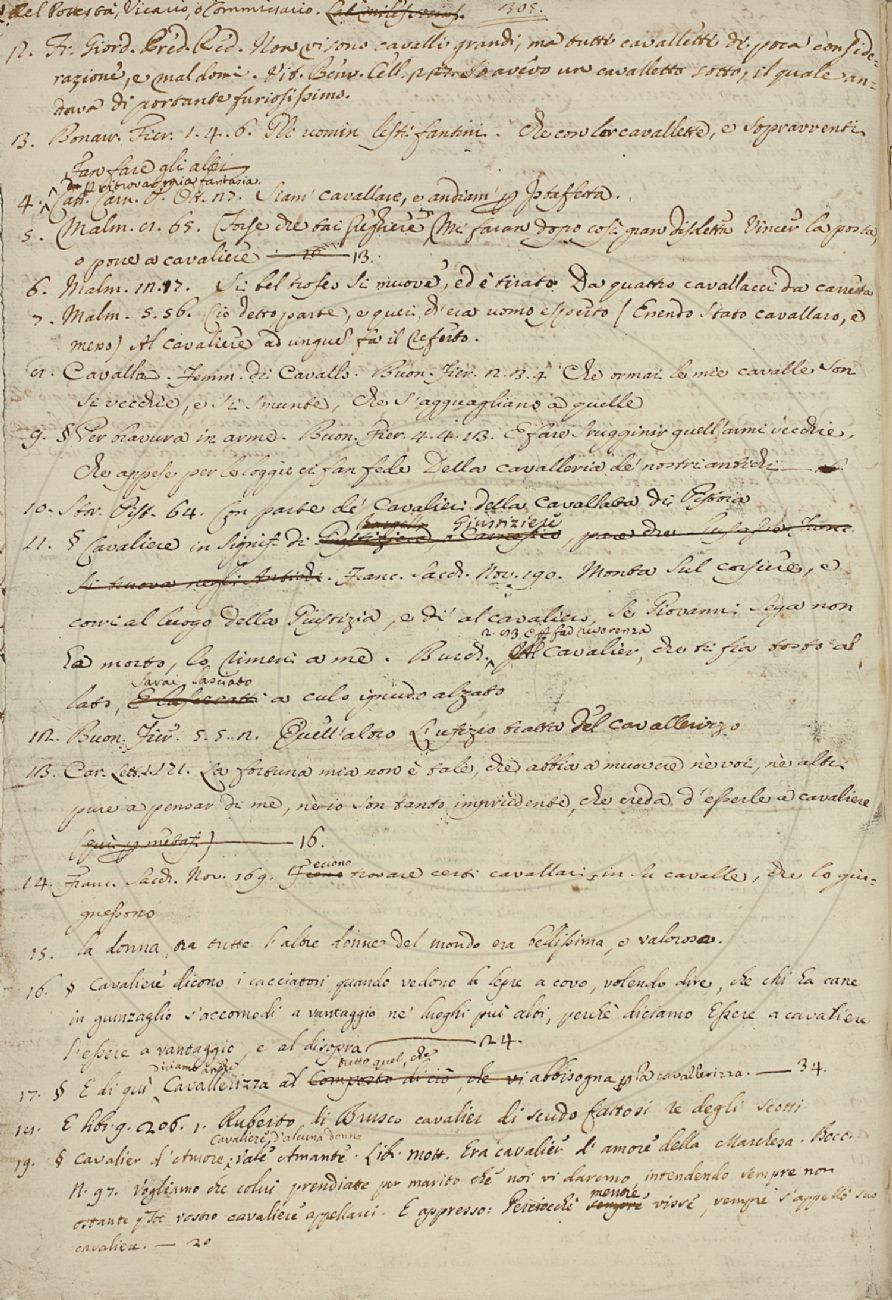 del Potestà, Vicario, o Commissario. 305.
12. Fr. Giord. Pred. Red. Non vi sono cavalli grandi, ma tutti cavalletti di poca conside=
razione, e mal domi. Vit. Benv. Cell. Io avevo un cavalletto sotto, il quale an=
dava di portante furiosissimo.
13. Bonar. Fier. 1. 4. 6. Gli uomin lesti fantini. Che con lor cavallette, e sopravventi
Fan fare gli altri
ritrovar mia fantasia.
4. Cant. Carn. Siam' cavallari, e andiam' p Istaffetta.
5. Malm. 65. Forse che tai preghiere Mi faran dopo così gran disdetta Vincer la posta,
o porre a cavaliere 13.
6. Malm. 17. Sì bel trofeo si muove, ed è tirato Da quattro cavallacci da carretta
7. Malm. 5. 56. Ciò detto parte, e quei, ch'era uomo esperto (Essendo stato cavallaro, e
messo) Al cavaliere ad unguè fa il referto.
Cavalla. Femm. di Cavallo. Buon. Fier. Che ormai le mie cavalle son
sì vecchie, e sì smunte, che s'agguagliano a quelle
9. § Per bravura in arme. Buon. Fier. 4. 4. 13. E fare irrugginir quell'armi vecchie,
Che appese per le loggie ci fan fede Della cavalleria de' nostri antichi
10. Stor. Pist. 64. Con parte de' Cavalieri della cavallata di Pistoia
11. § Cavaliere in signif. di Giustiziere
si trova negli Antichi. Franc. Sacch. Nov. 190. Monta sul corsiere, e
corri al luogo della Giustizia, e di' al cavaliere, Se Giovanni Sega non
ha morto, lo rimeni a me. Burch. 2. 93. E fa riverenza Al cavalier, che ti fia tosto al
lato, Sarai lasciato a culo ignudo alzato
12. Buon. Fier. 5. 5. 2. Quell'altro L'ufizio tratta del cavallerizzo
13. Car. Lett. 121. La fortuna mia non è tale, che abbia a muovere nè voi, nè altri
pure a pensar di me, nè io son tanto imprudente, che creda d'esserle a cavaliere
16.
14. Franc. Sacch. Nov. 169. Feciono trovare certi cavallari in su cavalle, che lo giu=
gnessono
15. la donna, tra tutte l'altre donne del mondo era bellissima, e valorosa.
16. § Cavaliere dicono i cacciatori quando vedono la lepre a covo, volendo dire, che chi ha cane
in guinzaglio s'accomodi a vantaggio ne' luoghi più alti, perchè diciamo Essere a cavaliere
l'essere a vantaggio, e al disopra 24.
17. § E di quì diciamo anche Cavallerizza al tutto quel, che vi abbisogna p la cavallerizza. — 34.
E libr. g. 206. 1. Ruberto di Brusco cavalier di scudo fattosi re degli Scotti
19. § Cavalier d'Amore, Cavaliere d'alcuna donna vale Amante. Lib. Mott. Era cavalier d'amore della Marchesa. Bocc.
N. 97. Vogliamo che colui prendiate per marito che noi vi daremo, intendendo sempre non
ostante questo vostro cavaliere appellarci. E appresso: Perciocchè mentre visse, sempre s'appellò suo
cavaliere. — 20